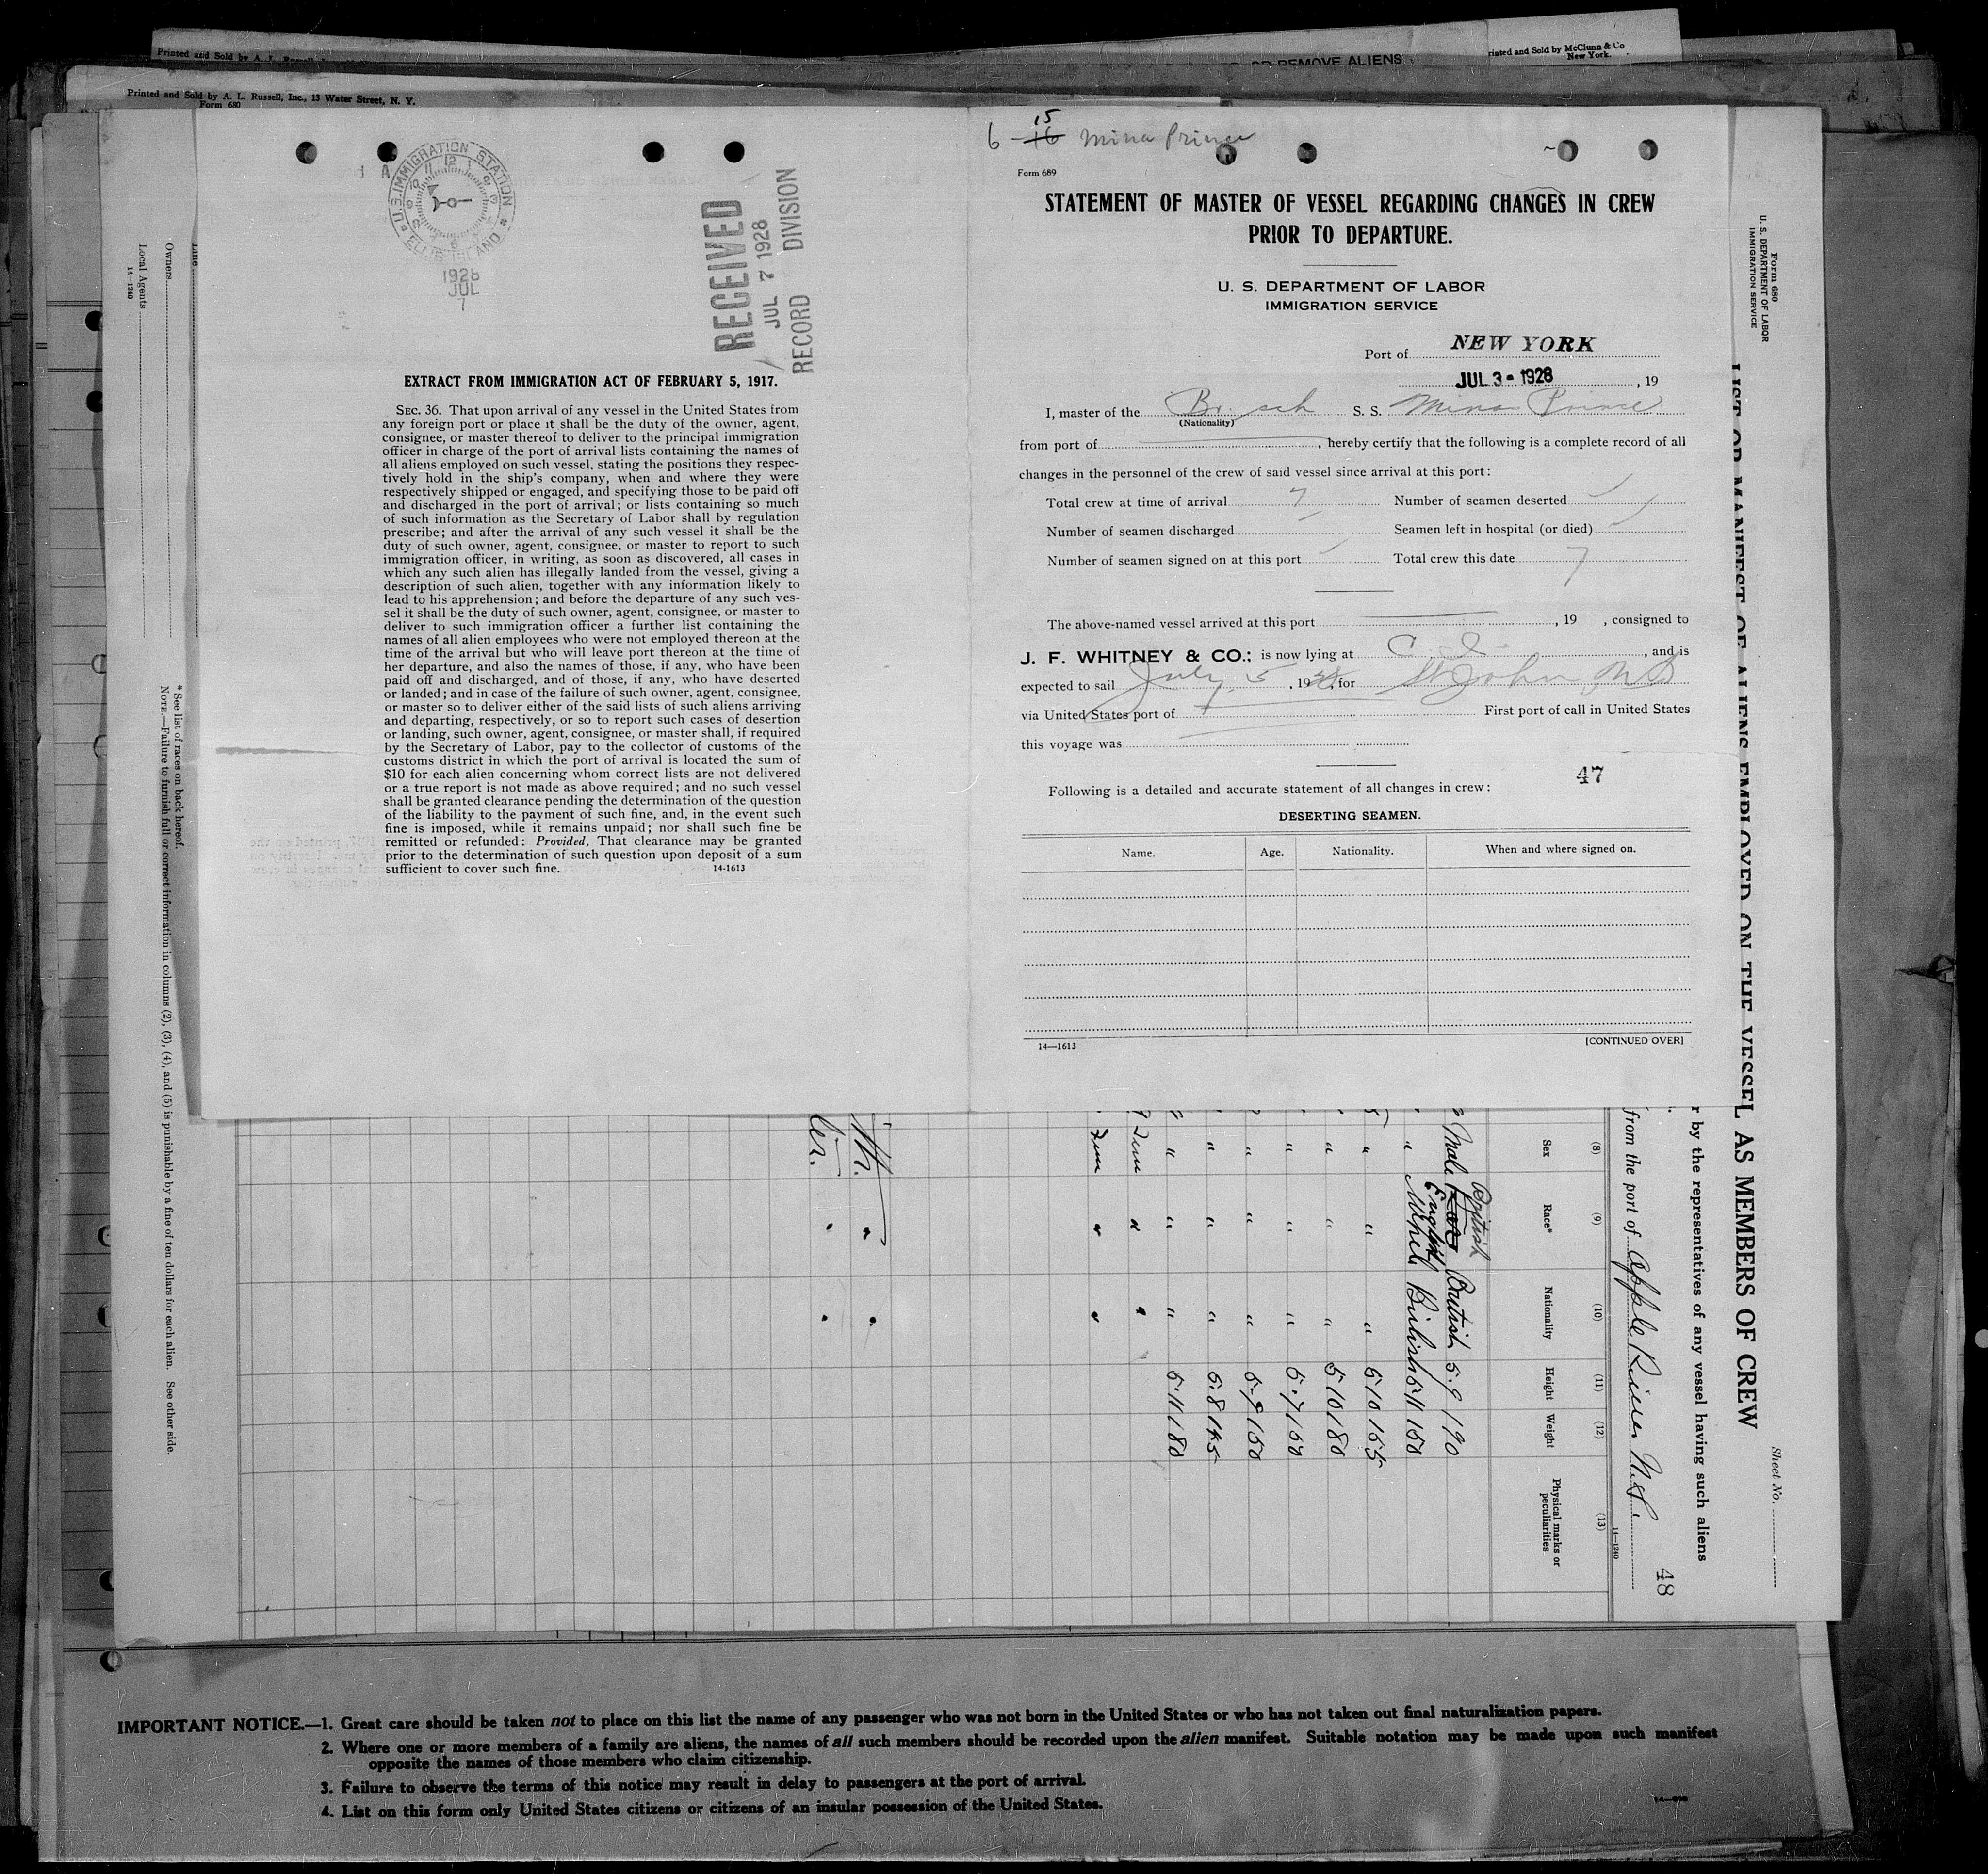 Printed and Sold by A. L. Russell, Inc.
OR REMOVE ALIENS
Printed and Sold by McClunn & Co
New York.
Printed and Sold by A. L. Russell, Inc., 13 Water Street, N. Y.
Form 680
U.S. IMMIGRATION STATION
ELLIS ISLAND
1928
JUL
7
RECEIVED
JUL 7 1928
RECORD DIVISION
EXTRACT FROM IMMIGRATION ACT OF FEBRUARY 5, 1917.
SEC. 36. That upon arrival of any vessel in the United States from
any foreign port or place it shall be the duty of the owner, agent,
consignee, or master thereof to deliver to the principal immigration
officer in charge of the port of arrival lists containing the names of
all aliens employed on such vessel, stating the positions they respec-
tively hold in the ship's company, when and where they were
respectively shipped or engaged, and specifying those to be paid off
and discharged in the port of arrival; or lists containing so much
of such information as the Secretary of Labor shall by regulation
prescribe; and after the arrival of any such vessel it shall be the
duty of such owner, agent, consignee, or master to report to such
immigration officer, in writing, as soon as discovered, all cases in
which any such alien has illegally landed from the vessel, giving a
description of such alien, together with any information likely to
lead to his apprehension; and before the departure of any such ves-
sel it shall be the duty of such owner, agent, consignee, or master to
deliver to such immigration officer a further list containing the
names of all alien employees who were not employed thereon at the
time of the arrival but who will leave port thereon at the time of
her departure, and also the names of those, if any, who have been
paid off and discharged, and of those, if any, who have deserted
or landed; and in case of the failure of such owner, agent, consignee,
or master so to deliver either of the said lists of such aliens arriving
and departing, respectively, or so to report such cases of desertion
or landing, such owner, agent, consignee, or master shall, if required
by the Secretary of Labor, pay to the collector of customs of the
customs district in which the port of arrival is located the sum of
$10 for each alien concerning whom correct lists are not delivered
or a true report is not made as above required; and no such vessel
shall be granted clearance pending the determination of the question
of the liability to the payment of such fine, and, in the event such
fine is imposed, while it remains unpaid; nor shall such fine be
remitted or refunded: Provided, That clearance may be granted
prior to the determination of such question upon deposit of a sum
sufficient to cover such fine.
14-1613
15
6 - 16 Mina Prince
Form 689
STATEMENT OF MASTER OF VESSEL REGARDING CHANGES IN CREW
PRIOR TO DEPARTURE.
U. S. DEPARTMENT OF LABOR
IMMIGRATION SERVICE
Port of NEW YORK
JUL 3 - 1928, 19
I, master of the Br. sch S. S. Mina Prince
(Nationality)
from port of , hereby certify that the following is a complete record of all
changes in the personnel of the crew of said vessel since arrival at this port:
Total crew at time of arrival 7 Number of seamen deserted
Number of seamen discharged Seamen left in hospital (or died)
Number of seamen signed on at this port Total crew this date 7
The above-named vessel arrived at this port , 19 , consigned to
J. F. WHITNEY & CO.; is now lying at C. I. , and is
expected to sail July 5, 1928, for St John, N B
via United States port of First port of call in United States
this voyage was
47
Following is a detailed and accurate statement of all changes in crew:
DESERTING SEAMEN.
Name. Age. Nationality. When and where signed on.
14—1613 [CONTINUED OVER]
Form 680
U. S. DEPARTMENT OF LABOR
IMMIGRATION SERVICE
LIST OR MANIFEST OF ALIENS EMPLOYED ON THE VESSEL AS MEMBERS OF CREW
Sheet No.
r by the representatives of any vessel having such aliens
from the port of Apple River N.S.
48
14—1240
(8) (9) (10) (11) (12) (13)
Sex Race* Nationality Height Weight Physical marks or
peculiarities
British
Male English British 5.9 190
" British 5.11 150
" " " 5 10 155
" " " 5 10 180
" " " 5.7 160
" " " 5.9 150
" " " 5.8 145
" " " 5.11 180
Fem " "
Fem " "
Line
Owners
Local Agents
14—1240
* See list of races on back hereof.
NOTE.—Failure to furnish full or correct information in columns (2), (3), (4), and (5) is punishable by a fine of ten dollars for each alien. See other side.
IMPORTANT NOTICE.—1. Great care should be taken not to place on this list the name of any passenger who was not born in the United States or who has not taken out final naturalization papers.
2. Where one or more members of a family are aliens, the names of all such members should be recorded upon the alien manifest. Suitable notation may be made upon such manifest
opposite the names of those members who claim citizenship.
3. Failure to observe the terms of this notice may result in delay to passengers at the port of arrival.
4. List on this form only United States citizens or citizens of an insular possession of the United States.